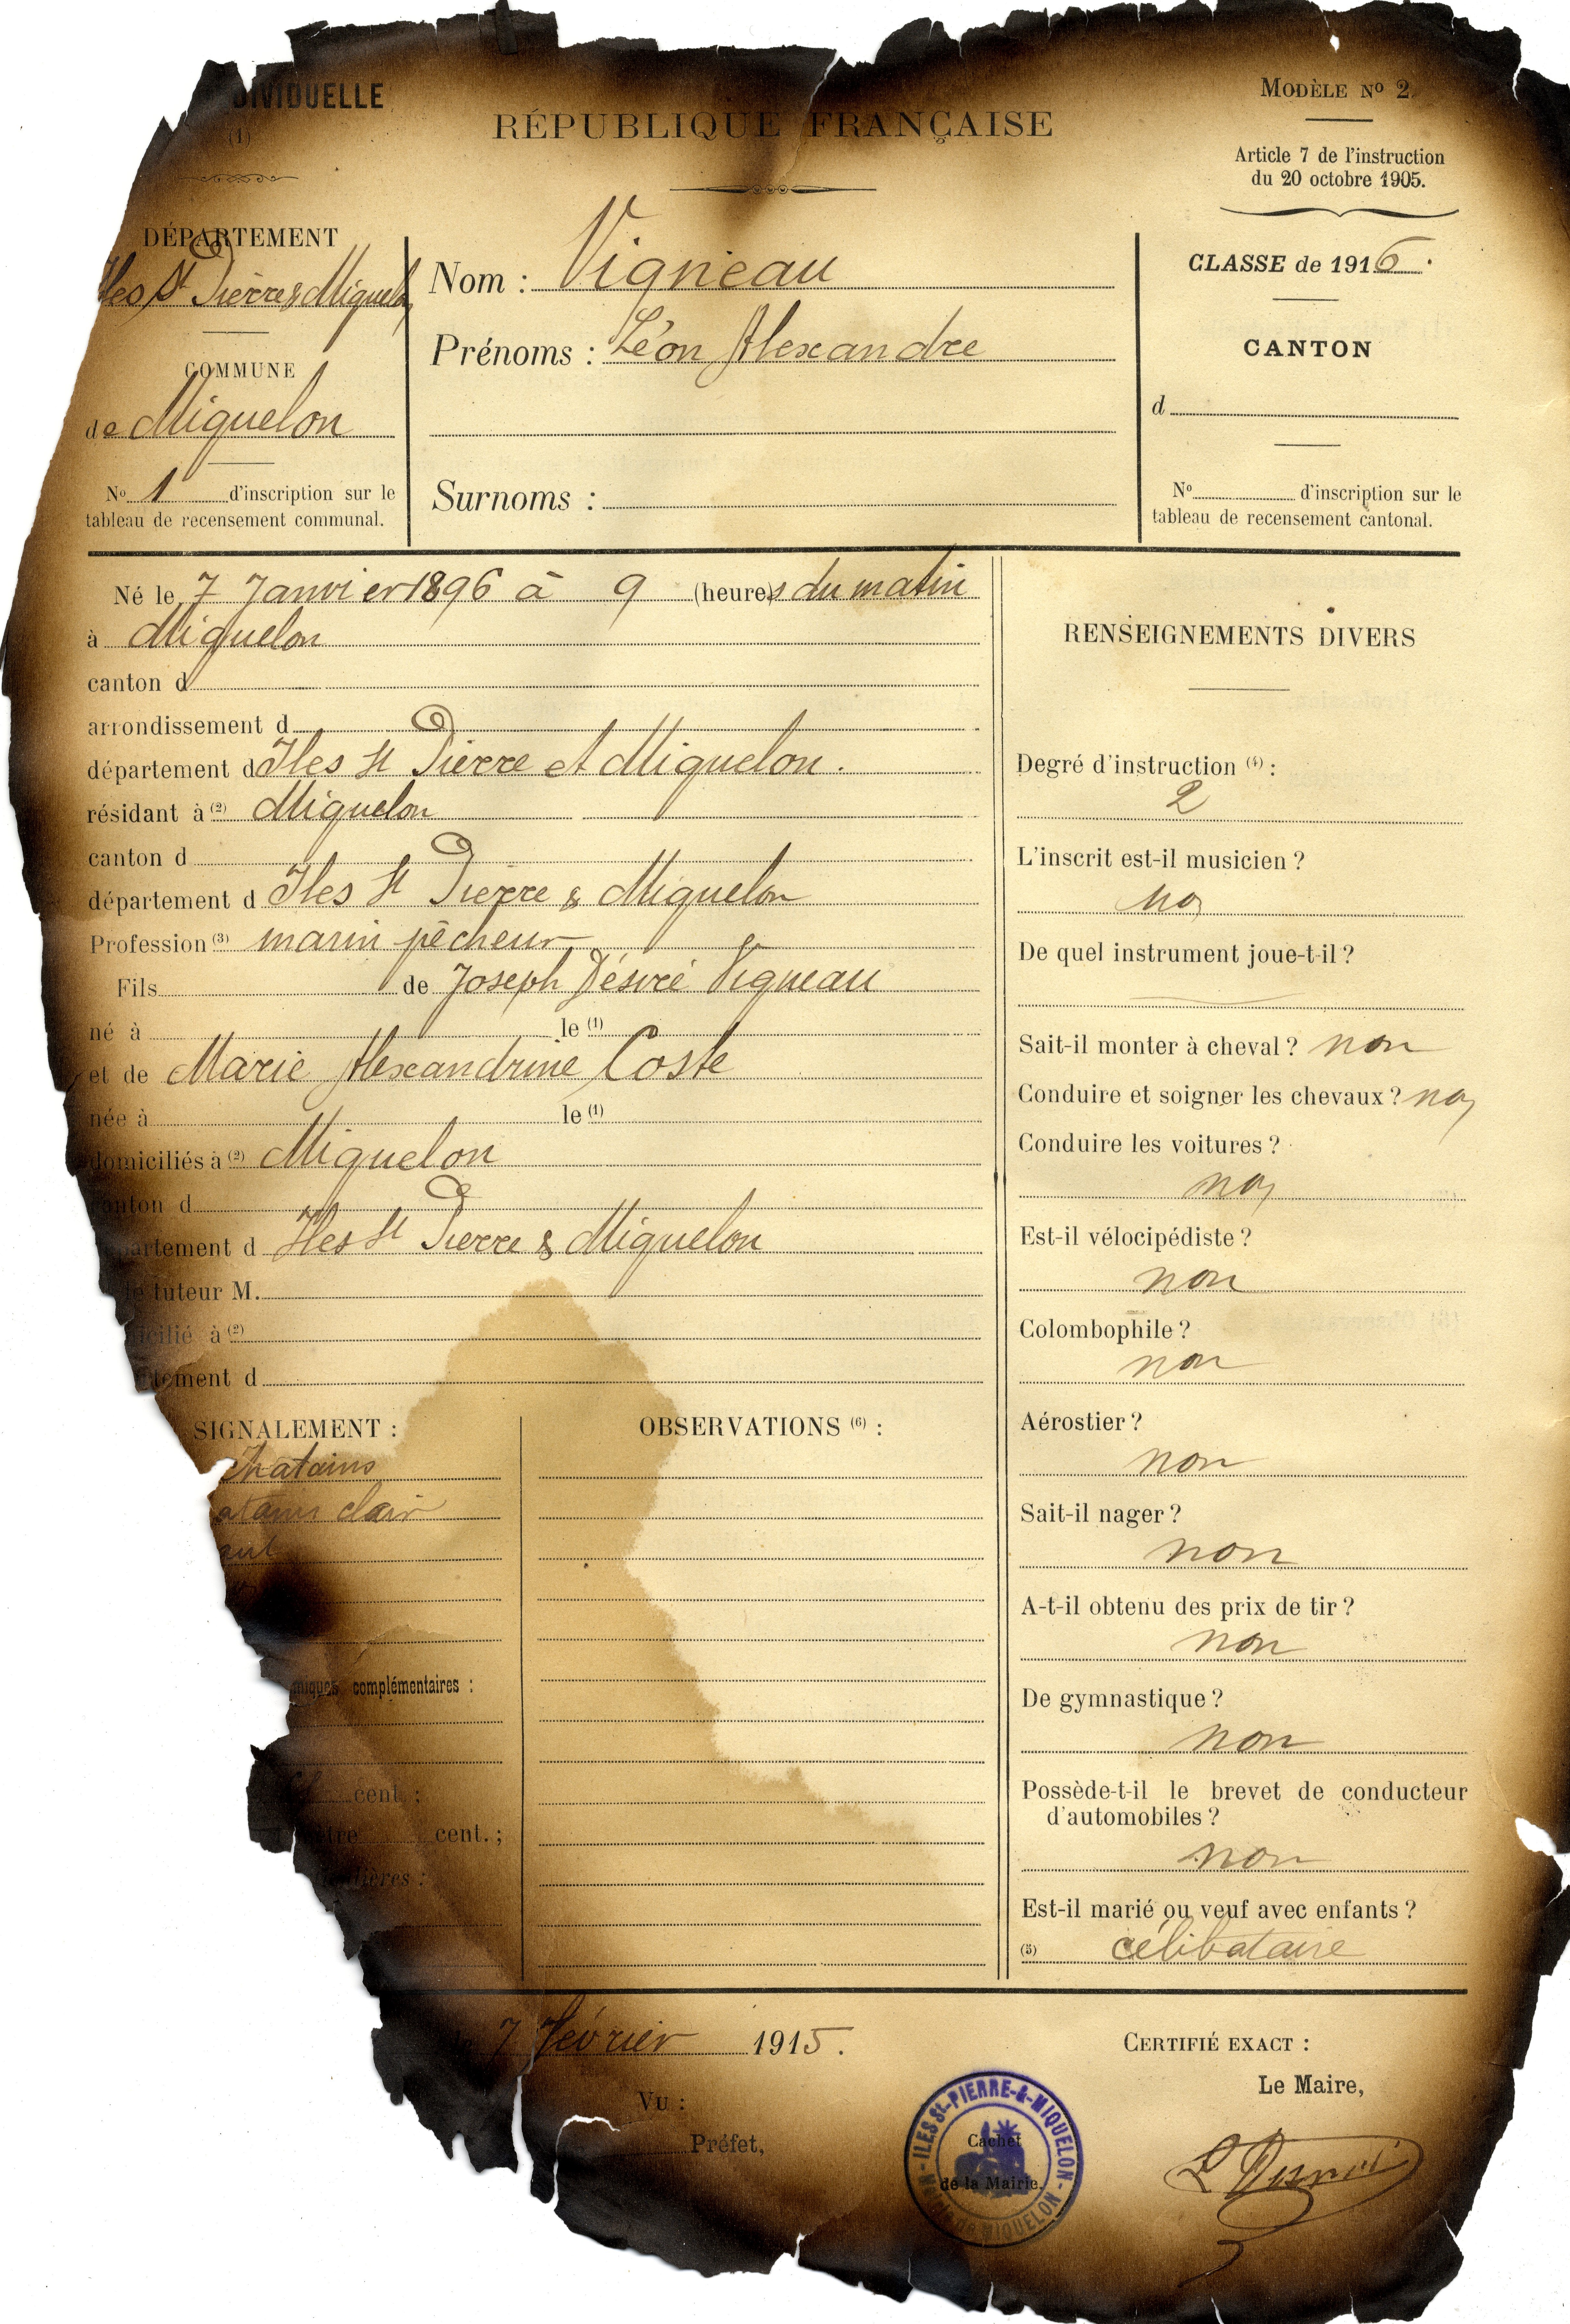 DIVIDUELLE
(1)
RÉPUBLIQUE FRANÇAISE
MODÈLE Nº 2
Article 7 de l'instruction
du 20 octobre 1905.
DÉPARTEMENT
Iles St Pierre & Miquelon
COMMUNE
de Miquelon
Nº 1 d'inscription sur le
tableau de recensement communal.
Nom : Vigneau
Prénoms : Léon Alexandre
Surnoms :
CLASSE de 1916.
CANTON
d
Nº d'inscription sur le
tableau de recensement cantonal.
Né le 7 Janvier 1896 à 9 (heures du matin
à Miquelon
canton d
arrondissement d
département d Iles St Pierre et Miquelon.
résidant à (2) Miquelon
canton d
département d Iles St Pierre & Miquelon
Profession (3) marin pêcheur
Fils de Joseph Désiré Vigneau
né à le (1)
et de Marie Alexandrine Coste
née à le (1)
domiciliés à (2) Miquelon
canton d
partement d Iles St Pierre & Miquelon
le tuteur M.
icilié à (2)
tement d
SIGNALEMENT :
chatains
atains clair
miques complémentaires :
cent. ;
ètre cent. ;
lières :
OBSERVATIONS (6) :
RENSEIGNEMENTS DIVERS
Degré d'instruction (4) :
2
L'inscrit est-il musicien ?
non
De quel instrument joue-t-il ?
Sait-il monter à cheval ? non
Conduire et soigner les chevaux ? non
Conduire les voitures ?
non
Est-il vélocipédiste ?
non
Colombophile ?
non
Aérostier ?
non
Sait-il nager ?
non
A-t-il obtenu des prix de tir ?
non
De gymnastique ?
non
Possède-t-il le brevet de conducteur
d'automobiles ?
non
Est-il marié ou veuf avec enfants ?
(5) célibataire
le 7 Février 1915.
VU :
Préfet,
CERTIFIÉ EXACT :
Le Maire,
ILES St-PIERRE-&-MIQUELON
Cachet
de la Mairie.
MIQUELON